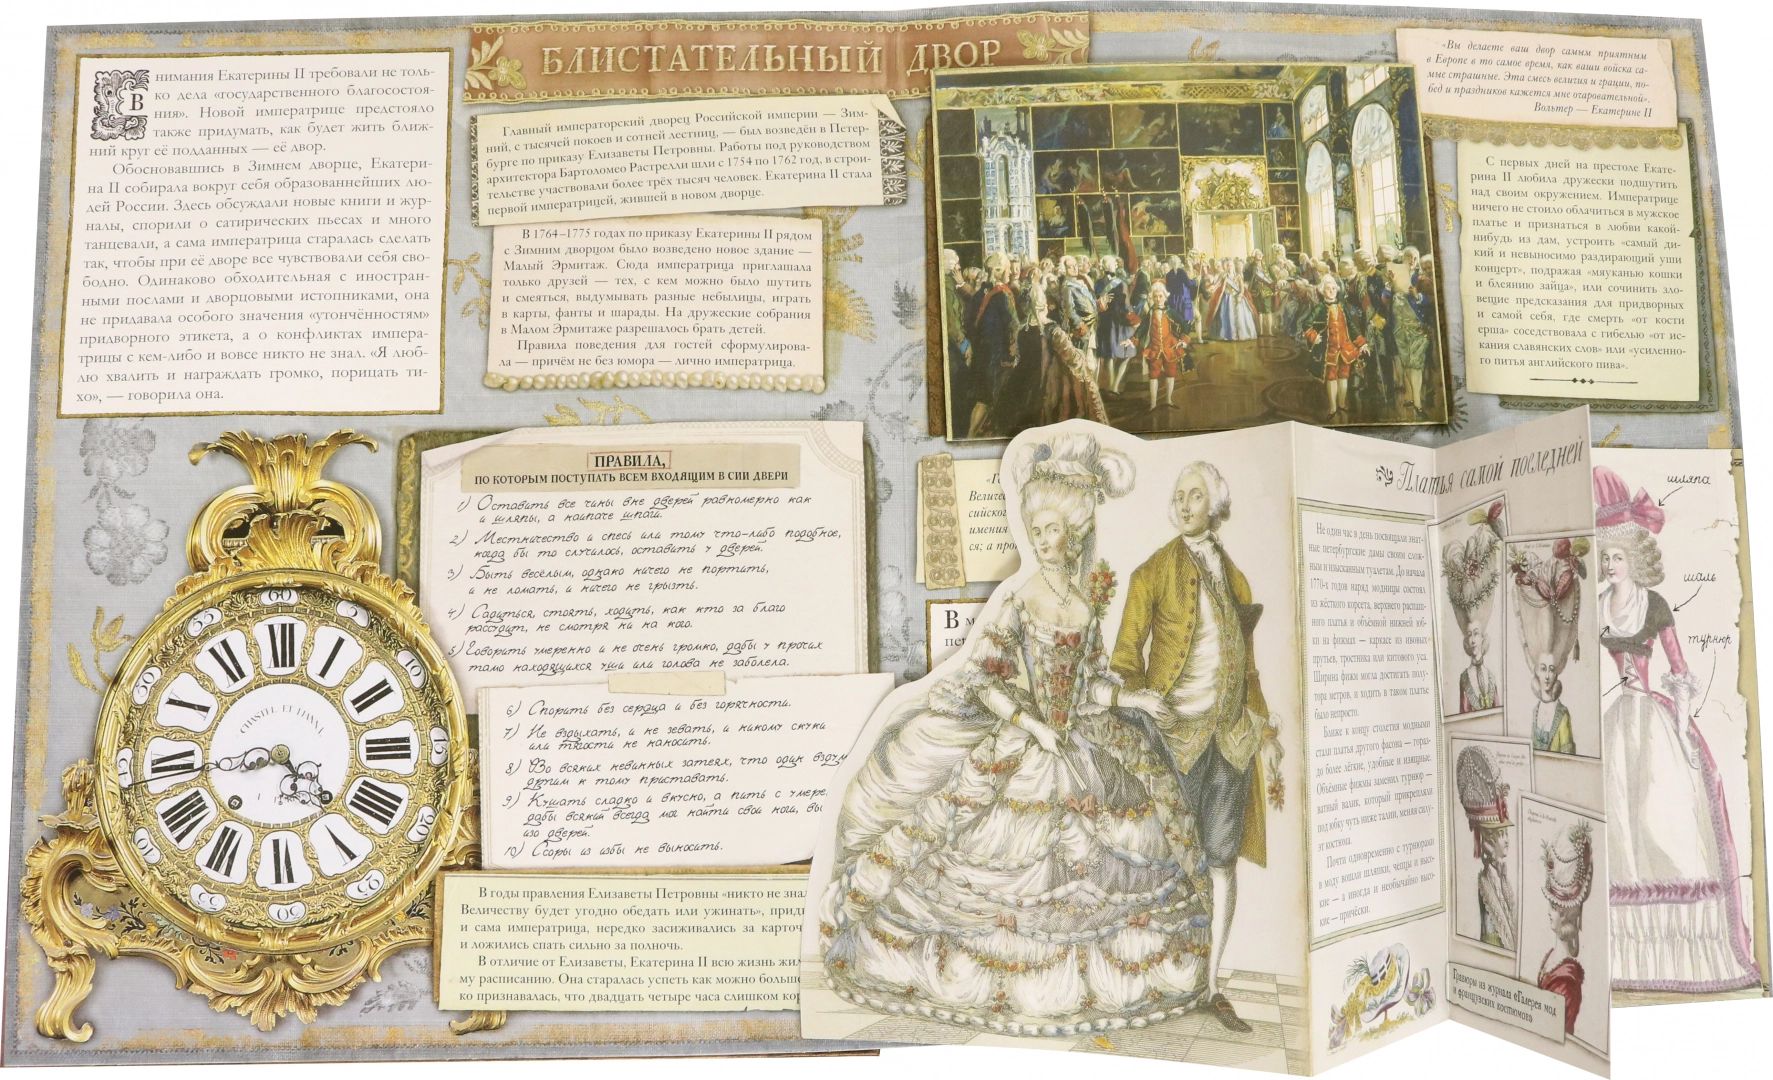 БЛИСТАТЕЛЬНЫЙ ДВОР
Внимания Екатерины II требовали не толь-
ко дела «государственного благосостоя-
ния». Новой императрице предстояло
также придумать, как будет жить ближ-
ний круг её подданных — её двор.
Обосновавшись в Зимнем дворце, Екатери-
на II собирала вокруг себя образованнейших лю-
дей России. Здесь обсуждали новые книги и жур-
налы, спорили о сатирических пьесах и много
танцевали, а сама императрица старалась сделать
так, чтобы при её дворе все чувствовали себя сво-
бодно. Одинаково обходительная с иностран-
ными послами и дворцовыми истопниками, она
не придавала особого значения «утончённостям»
придворного этикета, а о конфликтах импера-
трицы с кем-либо и вовсе никто не знал. «Я люб-
лю хвалить и награждать громко, порицать ти-
хо», — говорила она.
Главный императорский дворец Российской империи — Зим-
ний, с тысячей покоев и сотней лестниц, — был возведён в Петер-
бурге по приказу Елизаветы Петровны. Работы под руководством
архитектора Бартоломео Растрелли шли с 1754 по 1762 год, в строи-
тельстве участвовали более трёх тысяч человек. Екатерина II стала
первой императрицей, жившей в новом дворце.
В 1764–1775 годах по приказу Екатерины II рядом
с Зимним дворцом было возведено новое здание —
Малый Эрмитаж. Сюда императрица приглашала
только друзей — тех, с кем можно было шутить
и смеяться, выдумывать разные небылицы, играть
в карты, фанты и шарады. На дружеские собрания
в Малом Эрмитаже разрешалось брать детей.
Правила поведения для гостей сформулирова-
ла — причём не без юмора — лично императрица.
«Вы делаете ваш двор самым приятным
в Европе в то самое время, как ваши войска са-
мые страшные. Эта смесь величия и грации, по-
бед и праздников кажется мне очаровательной».
Вольтер — Екатерине II
С первых дней на престоле Екате-
рина II любила дружески подшутить
над своим окружением. Императрице
ничего не стоило облачиться в мужское
платье и признаться в любви какой-
нибудь из дам, устроить «самый ди-
кий и невыносимо раздирающий уши
концерт», подражая «мяуканью кошки
и блеянию зайца», или сочинить зло-
вещие предсказания для придворных
и самой себя, где смерть «от кости
ерша» соседствовала с гибелью «от ис-
кания славянских слов» или «усиленно-
го питья английского пива».
ПРАВИЛА,
ПО КОТОРЫМ ПОСТУПАТЬ ВСЕМ ВХОДЯЩИМ В СИИ ДВЕРИ
1) Оставить все чины вне дверей равномерно как
и шляпы, а наипаче шпаги.
2) Местничество и спесь или тому что-либо подобное,
когда бы то случилось, оставить у дверей.
3) Быть весёлым, однако ничего не портить,
и не ломать, и ничего не грызть.
4) Садиться, стоять, ходить, как кто за благо
рассудит, не смотря ни на кого.
5) Говорить умеренно и не очень громко, дабы у прочих
тамо находящихся уши или голова не заболела.
6) Спорить без сердца и без горячности.
7) Не вздыхать, и не зевать, и никому скуки
или тягости не наносить.
8) Во всяких невинных затеях, что один взду
другим к тому приставать.
9) Кушать сладко и вкусно, а пить с умере
дабы всякий всегда мог найти свои ноги, вы
изо дверей.
10) Ссоры из избы не выносить.
В годы правления Елизаветы Петровны «никто не знал
Величеству будет угодно обедать или ужинать», прид
и сама императрица, нередко засиживались за карточ
и ложились спать сильно за полночь.
В отличие от Елизаветы, Екатерина II всю жизнь жи
му расписанию. Она старалась успеть как можно больше
ко признавалась, что двадцать четыре часа слишком кор
Велич
сийског
имения
ся; а про
В м
пе
Платья самой последней
Не один час в день посвящали знат-
ные петербургские дамы своим слож-
ным и изысканным туалетам. До начала
1770-х годов наряд модницы состоял
из жёсткого корсета, верхнего распаш-
ного платья и объёмной нижней юб-
ки на фижмах — каркасе из ивовых
прутьев, тростника или китового уса.
Ширина фижм могла достигать полу-
тора метров, и ходить в таком платье
было непросто.
Ближе к концу столетия модными
стали платья другого фасона — гораз-
до более лёгкие, удобные и изящные.
Объёмные фижмы заменил турнюр —
ватный валик, который прикрепляли
под юбку чуть ниже талии, меняя силу-
эт костюма.
Почти одновременно с турнюрами
в моду вошли шляпки, чепцы и высо-
кие — а иногда и необычайно высо-
кие — причёски.
Гравюры из журнала «Галерея мод
и французских костюмов»
шляпа
шаль
турнюр
60 5 10 15 20 25 50 55 10 30 55
XII I II III IIII V VI VII VIII IX X XI